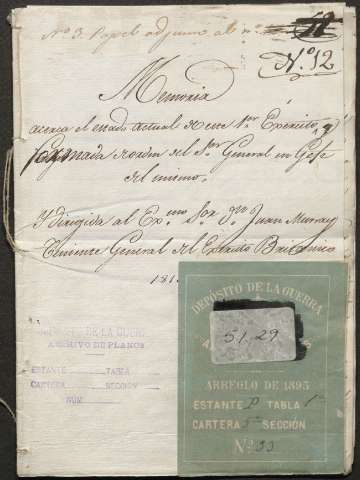 Nº 3. Papel adjunto al nº
Nº 12
Memoria
acerca el estado actual de este 1er Exército, y
formada de orden del Sor General en Gefe
del mismo.
Y dirigida al Exmo Sor Dn Juan Murray
Teniente General del Exército Britanico
181
DEPÓSITO DE LA GUERRA
ARCHIVO DE PLANOS
ESTANTE TABLA
CARTERA SECCIÓN
NÚM
DEPÓSITO DE LA GUERRA
A S
51, 29
ARREGLO DE 1895
ESTANTE P TABLA 1ª
CARTERA 5ª SECCIÓN
Nº 33